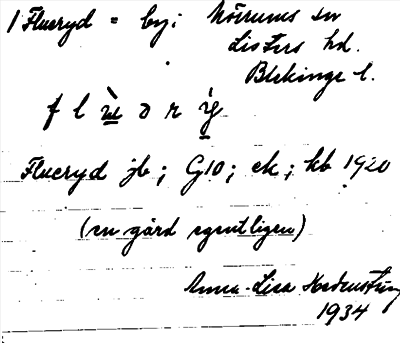 1 Flueryd = by; Mörrums sn
Listers hd.
Blekinge l.
f l ù ə r ýg
Flueryd jb; G10; ek; kb 1920
(en gård egentligen)
Anna-Lisa
1934